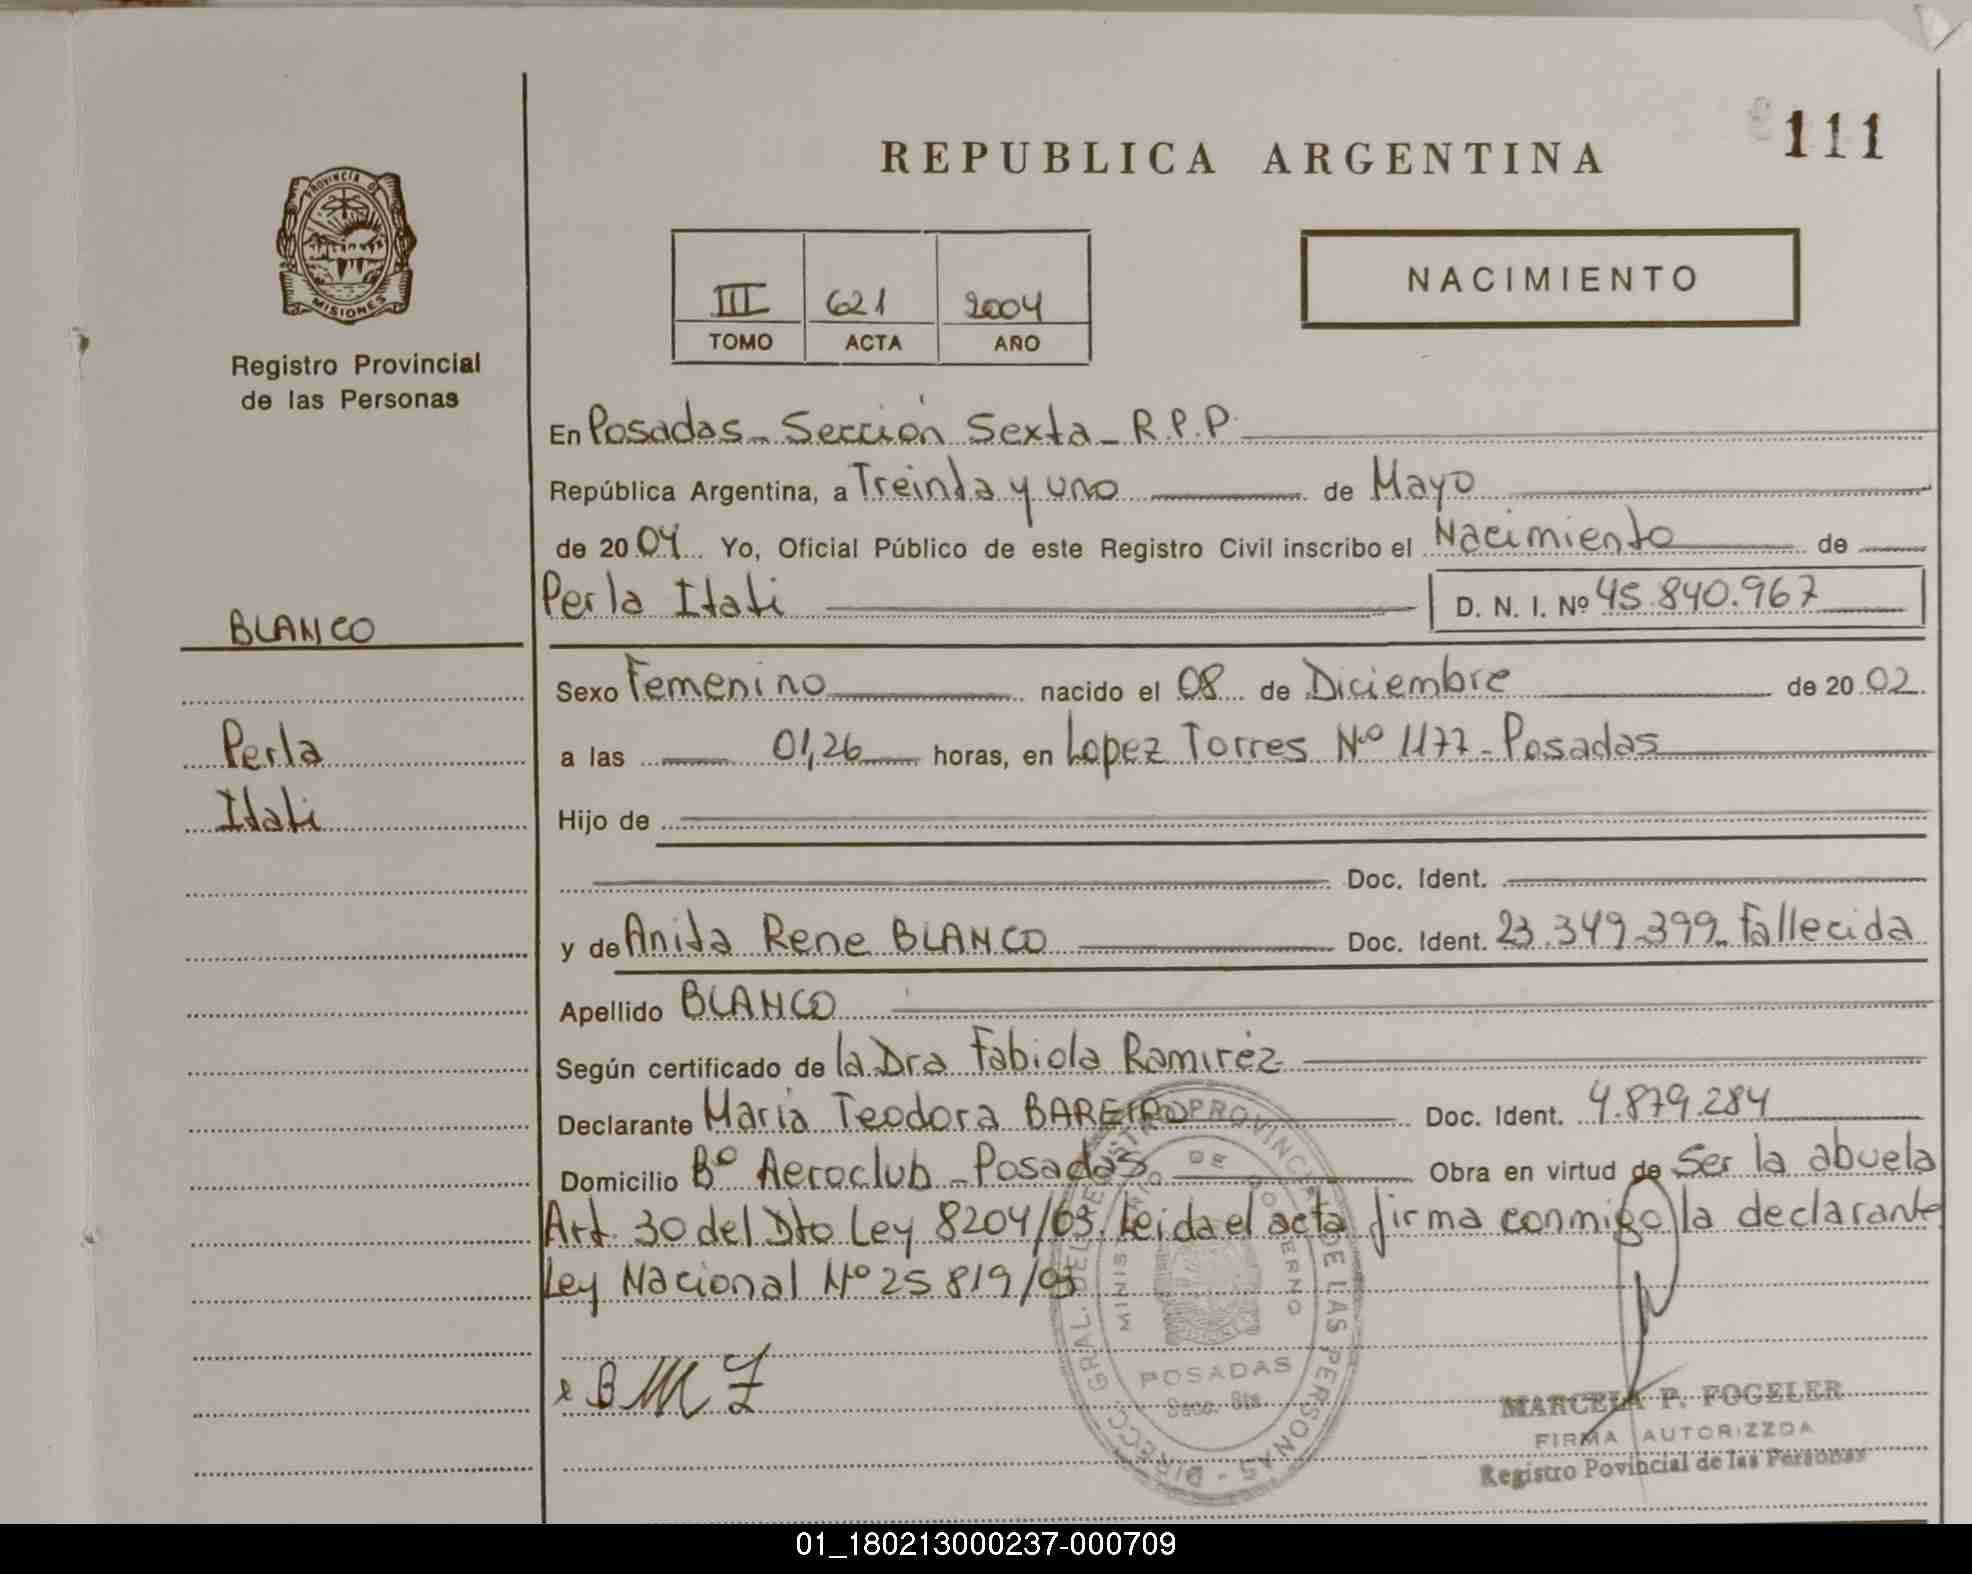 111
REPUBLICA ARGENTINA
NACIMIENTO
III 621 2004
TOMO ACTA AÑO
PROVINCIA DE
MISIONES
Registro Provincial
de las Personas
En Posadas - Sección Sexta - R.P.P.
República Argentina, a Treinta y uno de Mayo
de 2004 Yo, Oficial Público de este Registro Civil inscribo el Nacimiento de
Perla Itati D. N. I. Nº 45.840.967
BLANCO
Perla
Itati
Sexo Femenino nacido el 08 de Diciembre de 2002
a las 01,26 horas, en Lopez Torres Nº 1177 - Posadas
Hijo de
Doc. Ident.
y de Anita Rene BLANCO Doc. Ident. 23.349.399 - Fallecida
Apellido BLANCO
Según certificado de la Dra Fabiola Ramirez
Declarante Maria Teodora BAREIRO Doc. Ident. 4.879.284
Domicilio Bº Aeroclub - Posadas Obra en virtud de Ser la abuela
Art. 30 del Dto Ley 8204/63. Leida el acta firma conmigo la declarante
Ley Nacional Nº 25819/03
DIRECC. GRAL. DEL REGISTRO PROVINCIAL DE LAS PERSONAS
MINISTERIO DE GOBIERNO
POSADAS
Secc. 6ta.
MARCELA P. FOGELER
FIRMA AUTORIZZDA
Registro Povincial de las Personas
01_180213000237-000709